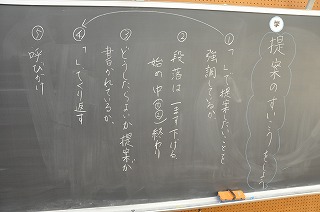 学 提案のすいこうをしよう
① 「 」で提案したいことを
強調しているか。
② 段落は一ます下げる。
始め 中(①②) 終わり
③ どうしたらよいか提案が
書かれているか。
④ 「 」でくり返す
⑤ 呼びかけ